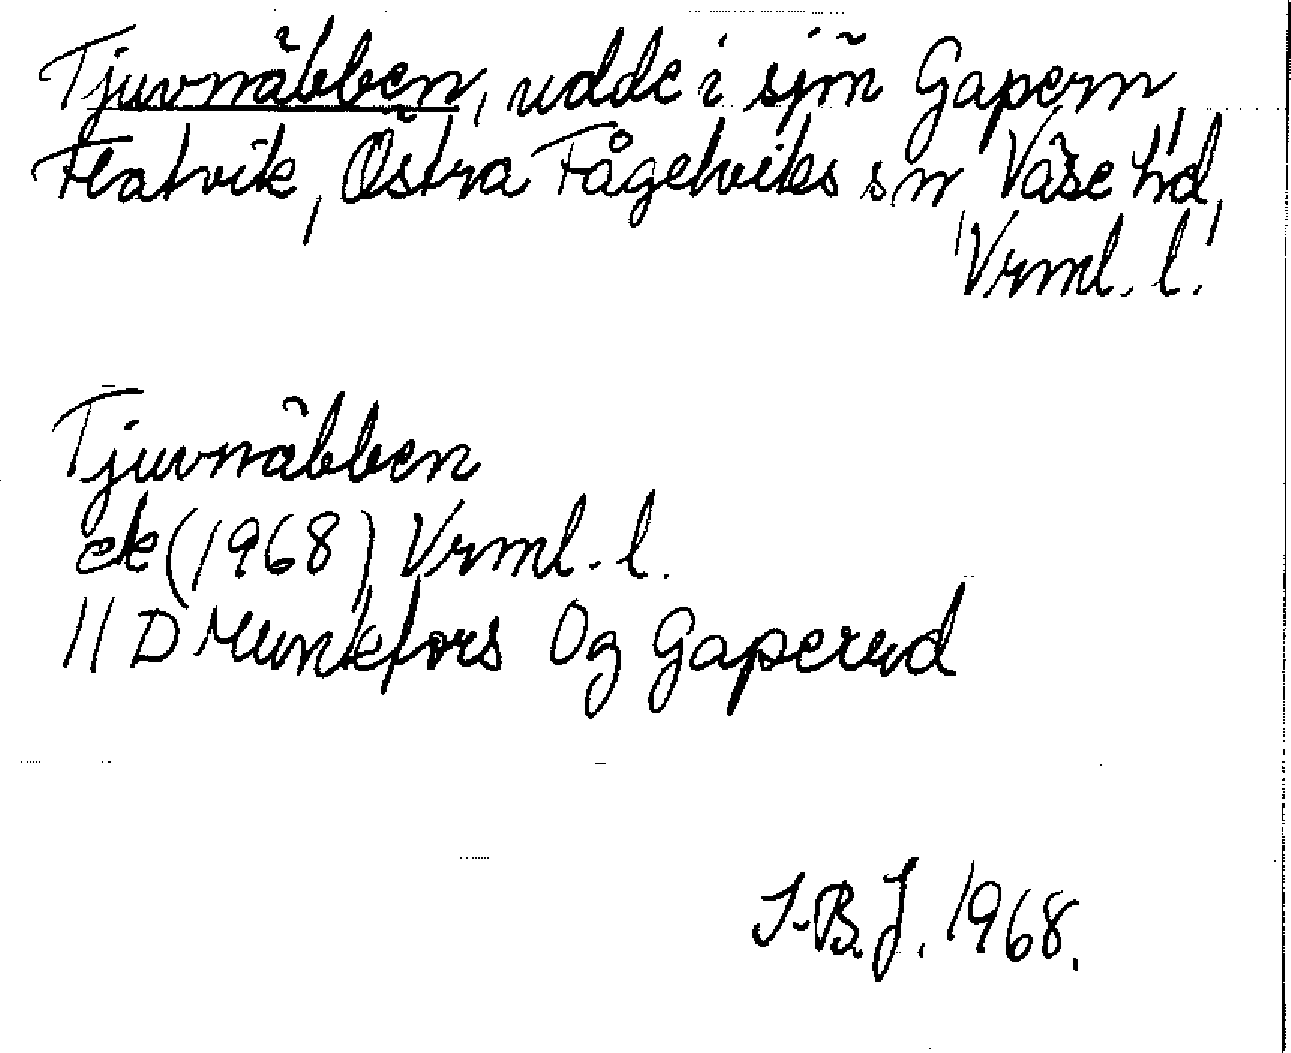 Tjuvnäbben, udde i sjön Gapern,
Flatvik, Östra Fågelviks sn, Väse hd,
Vrml. l.
Tjuvnäbben
ek (1968) Vrml. l.
11 D Munkfors 0g Gaperud
I-B.J. 1968.